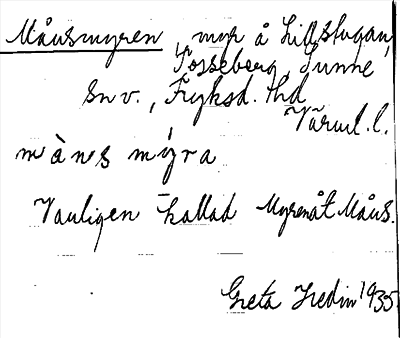 Månsmyren, myr å Lillstugan,
Tosseberg, Sunne
sn v., Fryksd. hd
Värml. l.
màns mýra
Vanligen kallad Myrenåt Måns.
Greta Hedin 1935